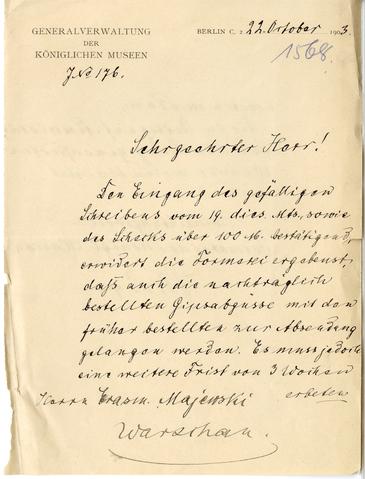 GENERALVERWALTUNG
DER
KÖNIGLICHEN MUSEEN
BERLIN C. 2 22. October 1903.
1568.
J No 176.
Sehrgeehrter Herr!
Den Eingang des gefälligen
Schreibens vom 19. dies. Mts., sowie
des Schecks über 100 M. bestätigend,
erwidert die Formerei ergebenst,
daß auch die nachträglich
bestellten Gipsabgüsse mit den
früher bestellten zur Absendung
gelangen werden. Es muss jedoch
eine weitere Frist von 3 Wochen
erbeten
Herrn Erasm. Majewski
Warschau.